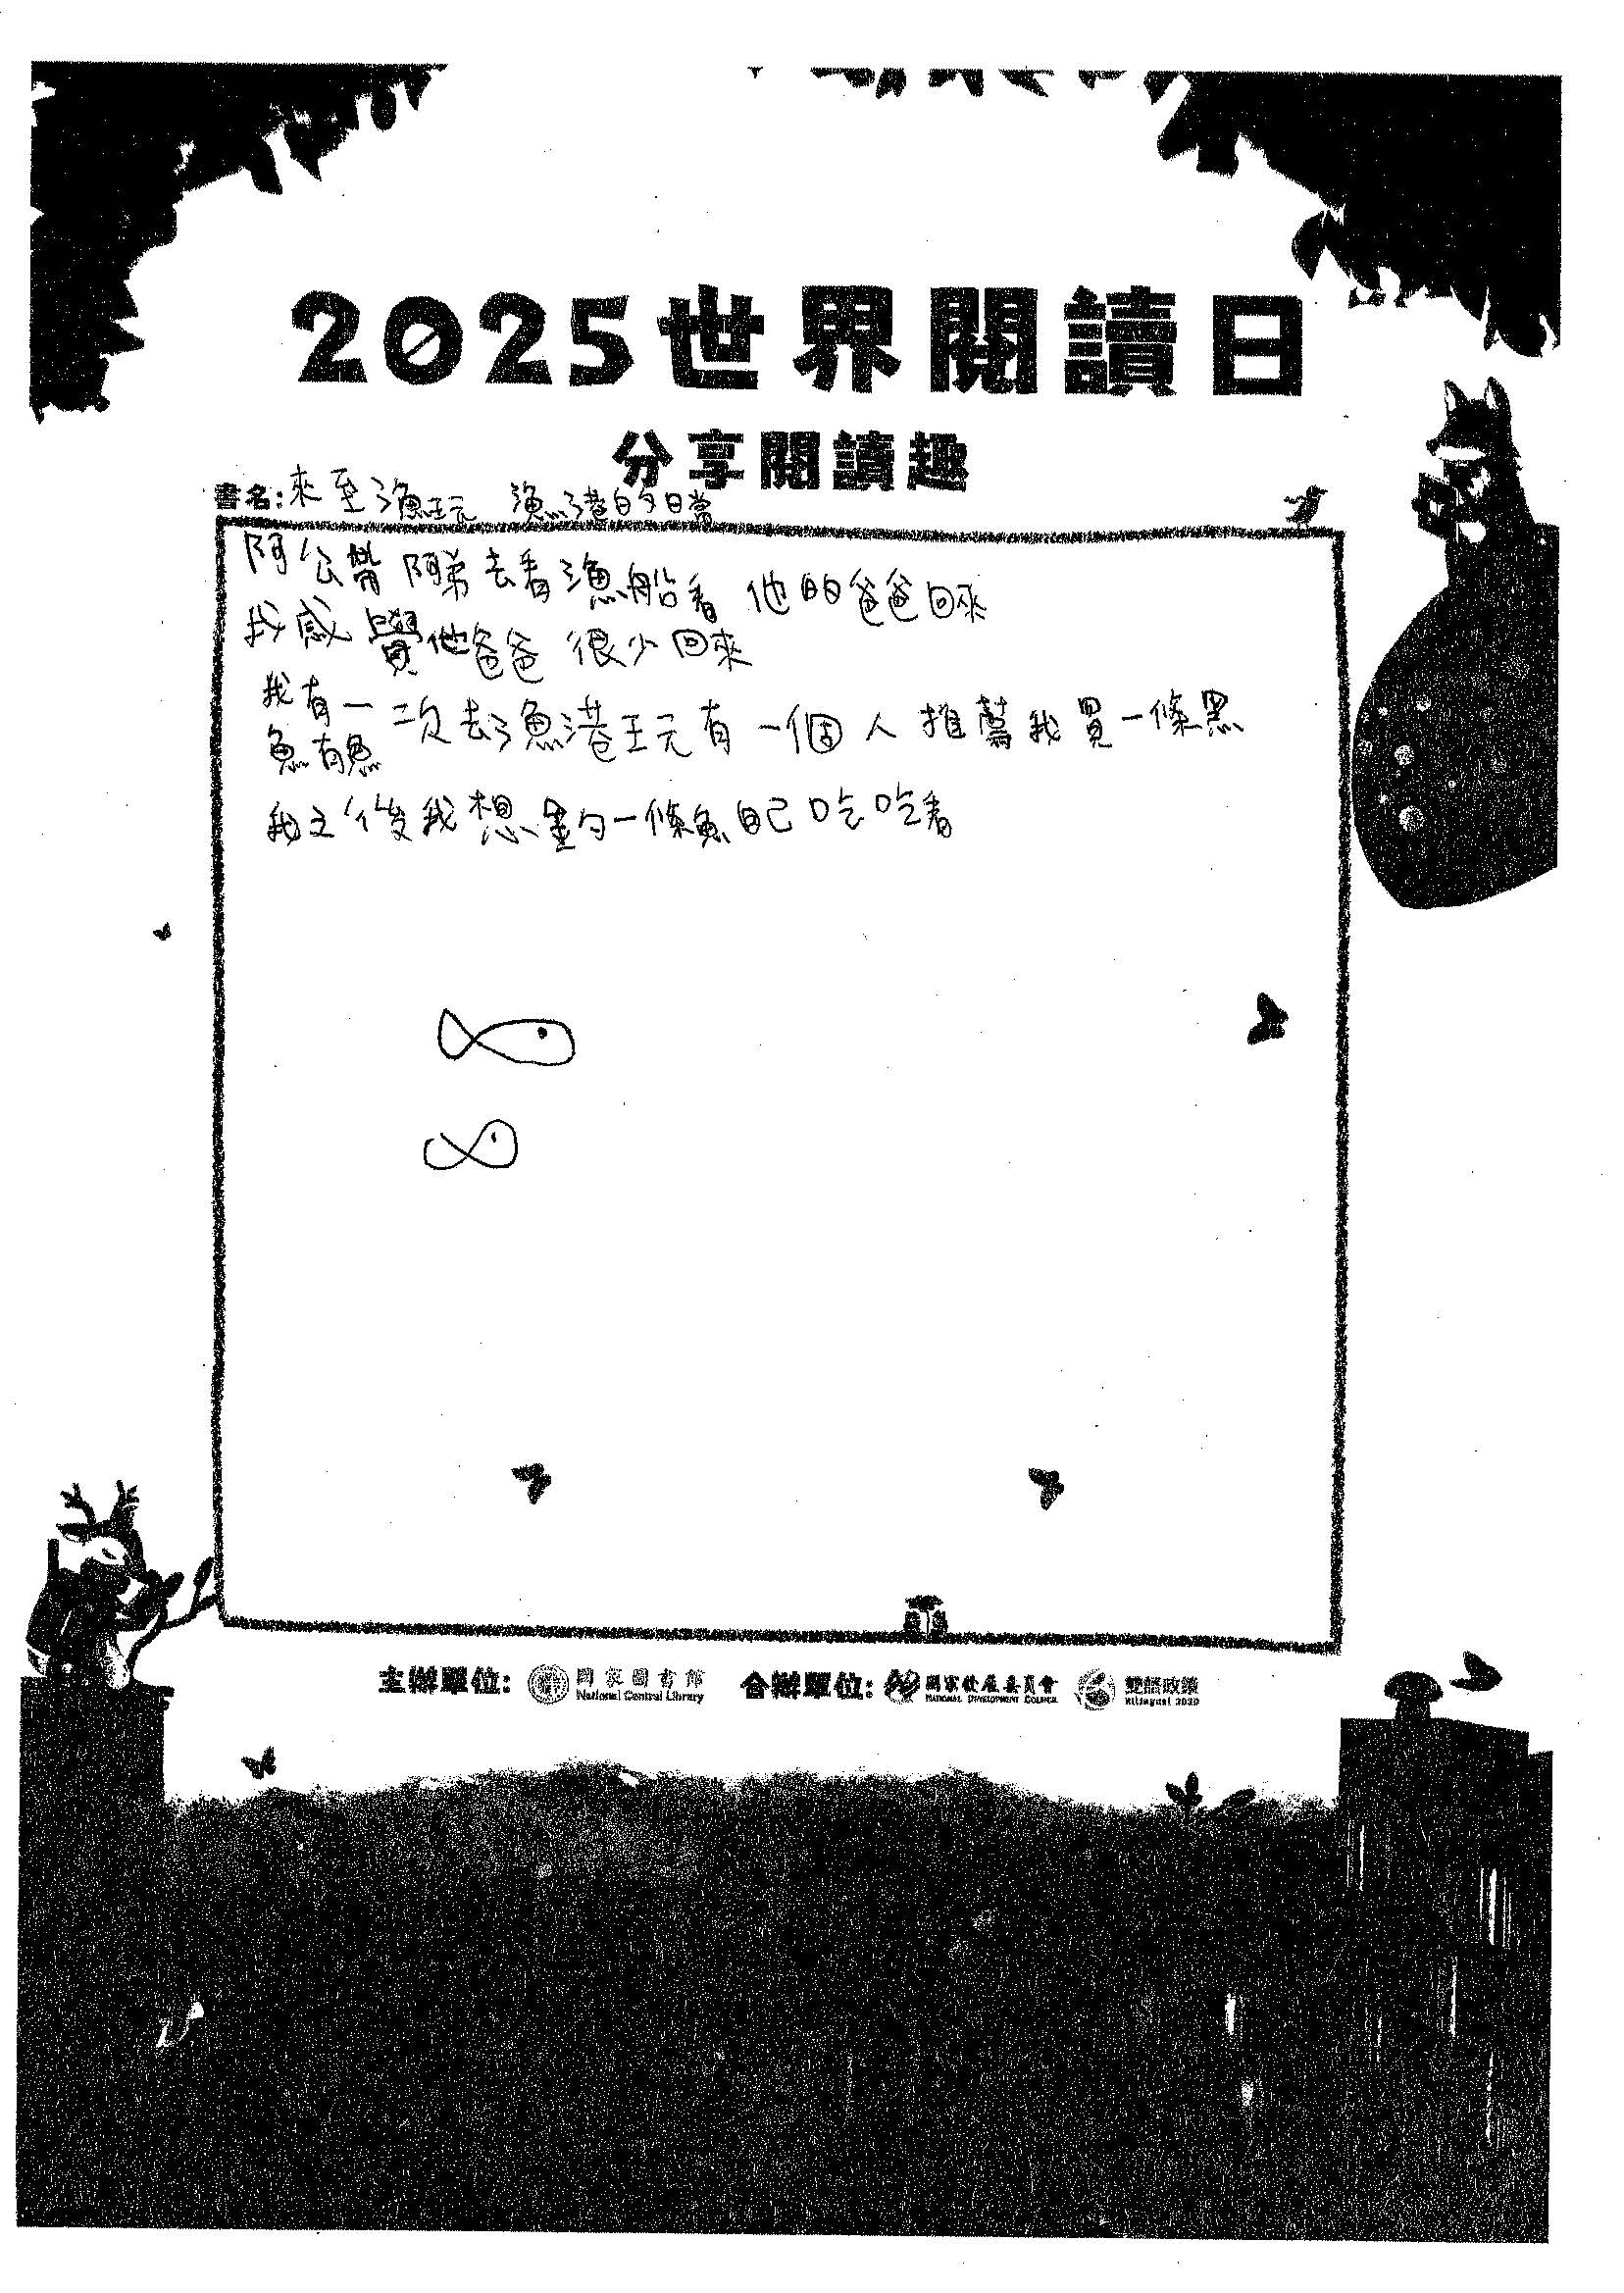 2025世界閱讀日
分享閱讀趣
書名:來至漁玩 漁港的日常
阿公帶阿弟去看漁船看他的爸爸回來
我感覺他爸爸很少回來
我有一次去漁港玩有一個人推薦我買一條黑
魚有魚
我之後我想釣一條魚自己吃吃看
主辦單位: 國家圖書館 National Central Library 合辦單位: 國家發展委員會 NATIONAL DEVELOPMENT COUNCIL 雙語政策 Bilingual 2030